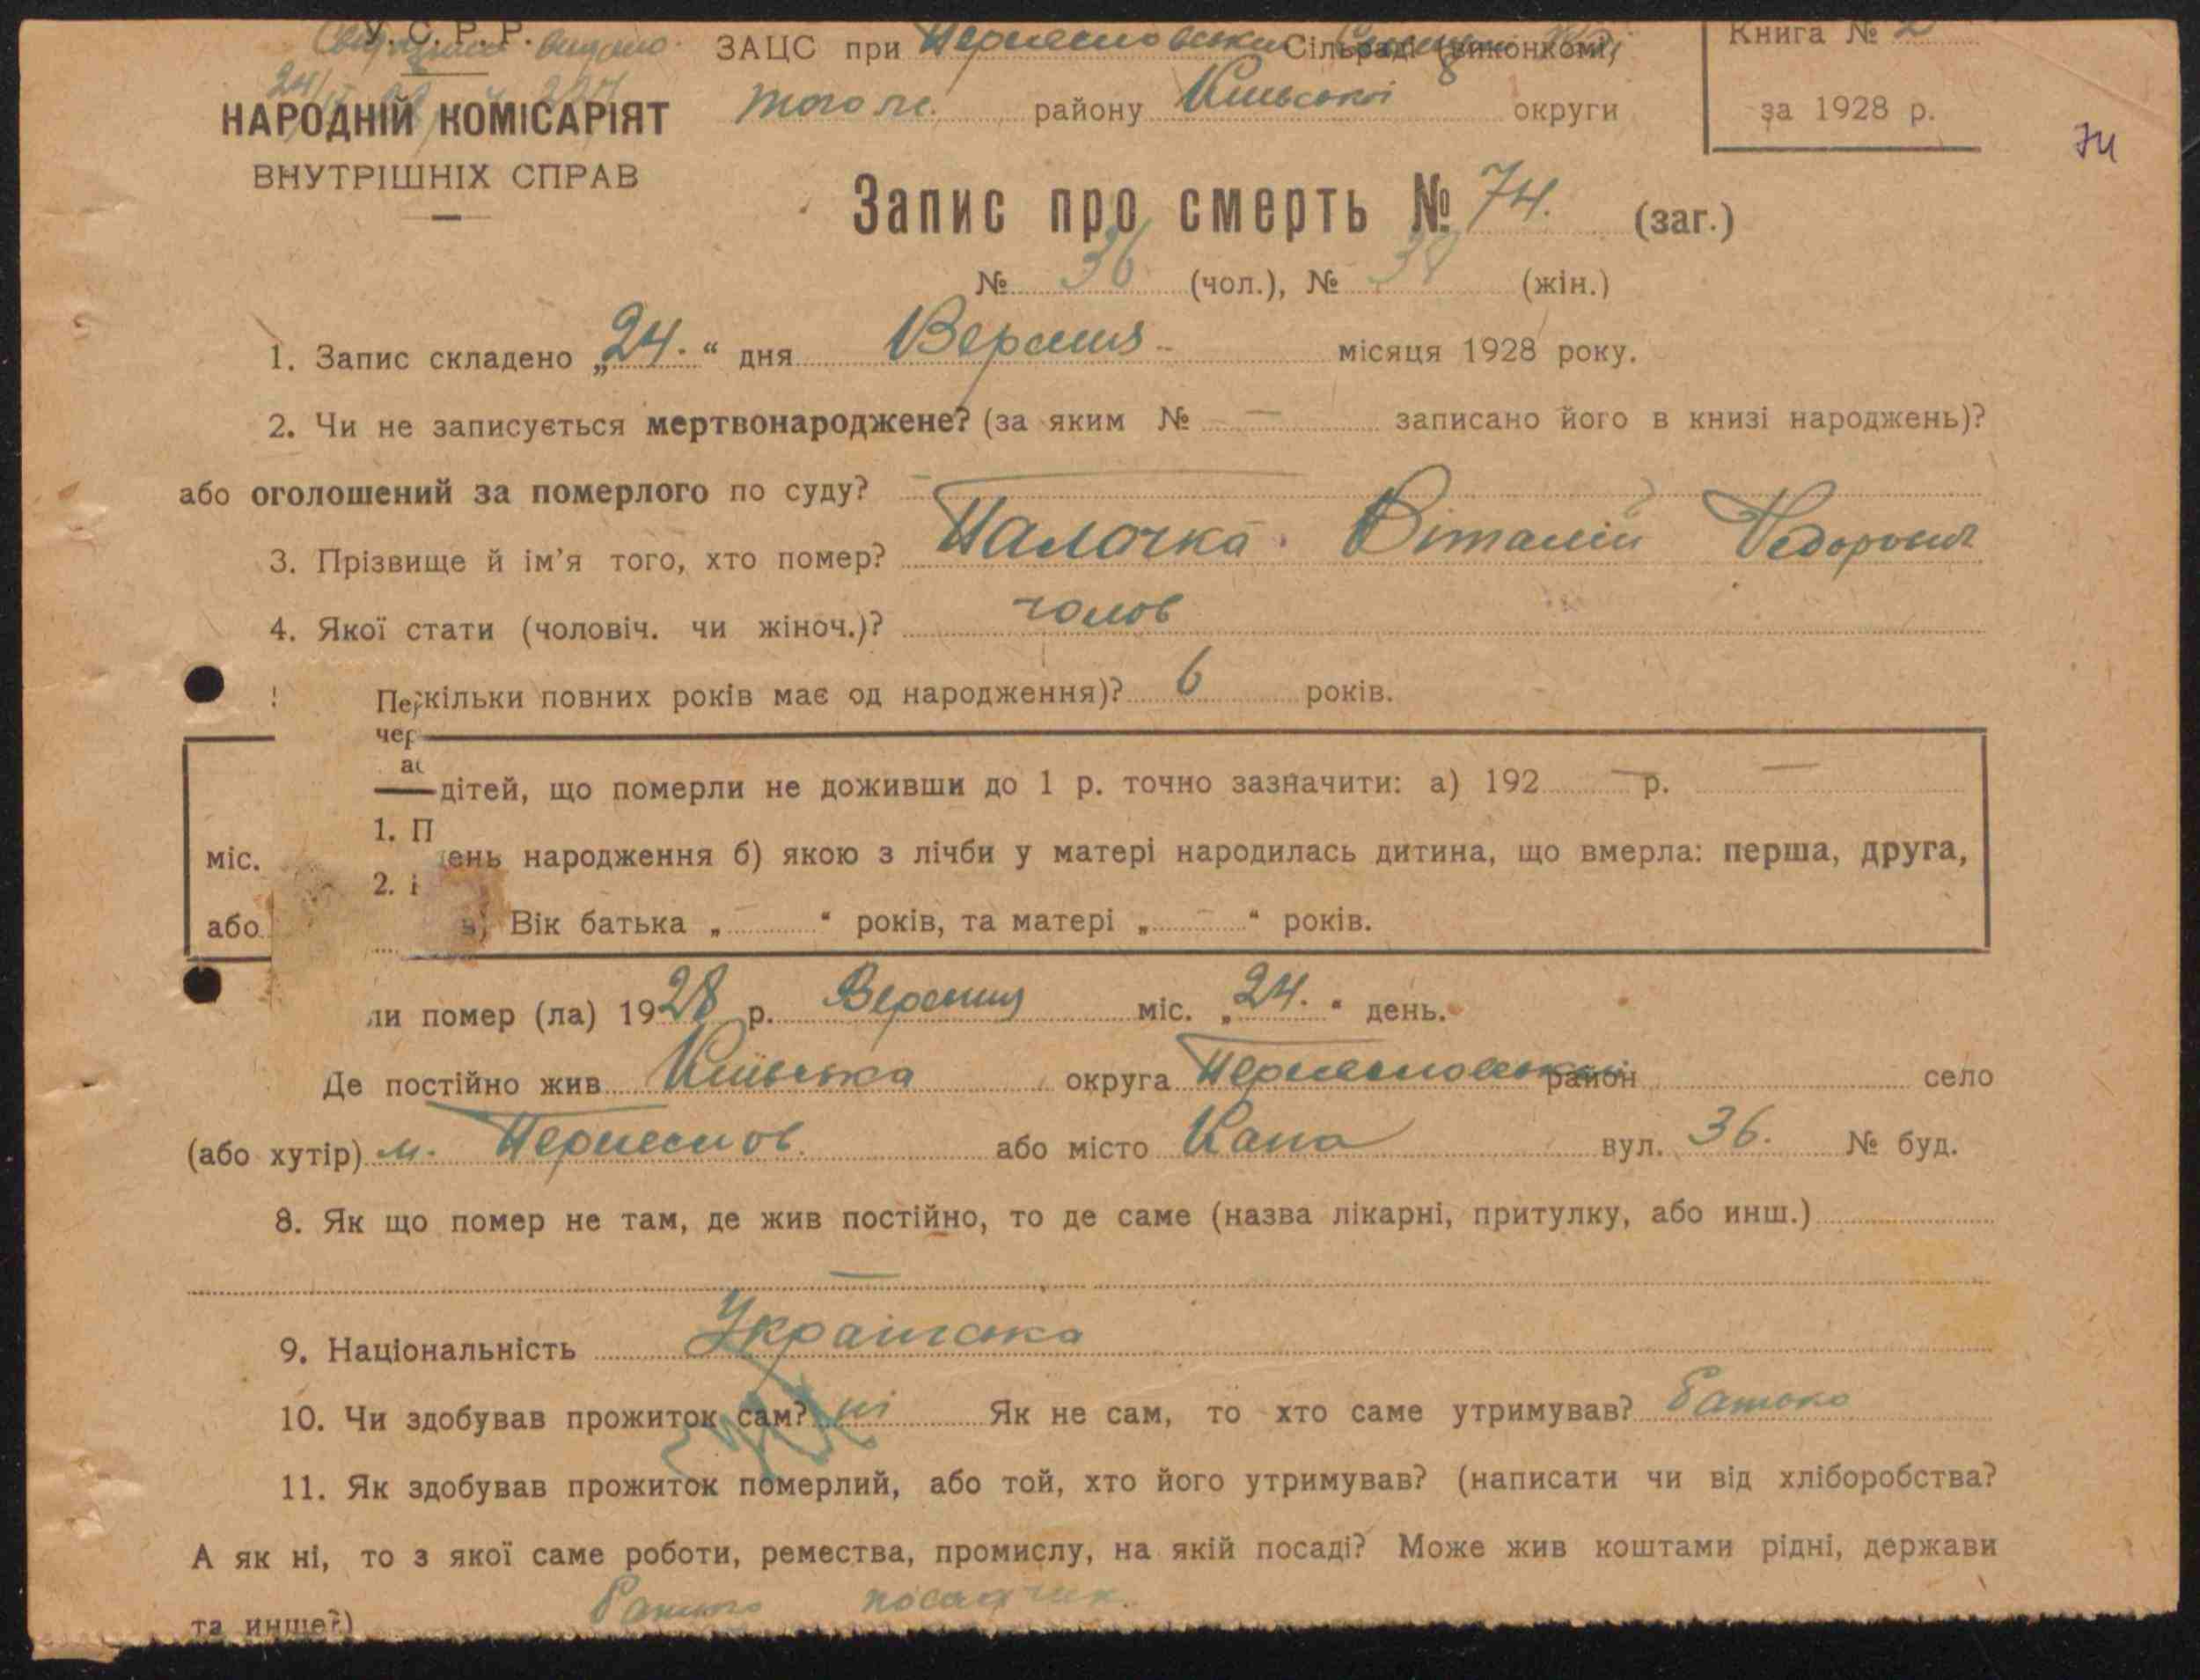 У. С. Р. Р.
видано
ЗАЦС при Сільраді (виконкомі)
Книга № 2
того ж району Київської округи
за 1928 р.
НАРОДНІЙ КОМІСАРІЯТ
74
ВНУТРІШНІХ СПРАВ
Запис про смерть № 74. (заг.)
№ 36 (чол.), № 38 (жін.)
1. Запис складено „24.“ дня Вересня місяця 1928 року.
2. Чи не записується мертвонароджене? (за яким № — записано його в книзі народжень)?
або оголошений за померлого по суду? —
3. Прізвище й ім'я того, хто помер? Палочка Віталій Федорович
4. Якої стати (чоловіч. чи жіноч.)? чолов
Пе кільки повних років має од народження)? 6 років.
чер
дітей, що померли не доживши до 1 р. точно зазначити: а) 192 — р. —
1. П
міс. ень народження б) якою з лічби у матері народилась дитина, що вмерла: перша, друга,
2. і
або в) Вік батька „ — “ років, та матері „ — “ років.
ли помер (ла) 1928 р. Вересня міс. „24.“ день.
Де постійно жив Київська округа район село
(або хутір) м. або місто вул. 36. № буд.
8. Як що помер не там, де жив постійно, то де саме (назва лікарні, притулку, або инш.)
—
9. Національність Українська
10. Чи здобував прожиток сам? ні Як не сам, то хто саме утримував? батько
11. Як здобував прожиток померлий, або той, хто його утримував? (написати чи від хліборобства?
А як ні, то з якої саме роботи, ремества, промислу, на якій посаді? Може жив коштами рідні, держави
та инше?) Батько